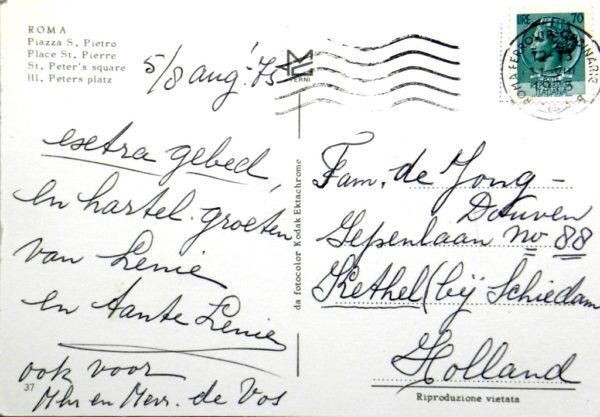 ROMA
Piazza S. Pietro
Place St. Pierre
St. Peter's square
Hl. Peters platz
5/8 aug! '75
TERNI
LIRE 70
exetra gebed,
en hartel. groeten
van Lenie
en Tante Lenie
ook voor
Mhr en Mevr. de Vos
37
da fotocolor Kodak Ektachrome
Fam. de Jong-
Douven
Gespenlaan no 88
Kethel (bij Schiedam
Holland
Riproduzione vietata